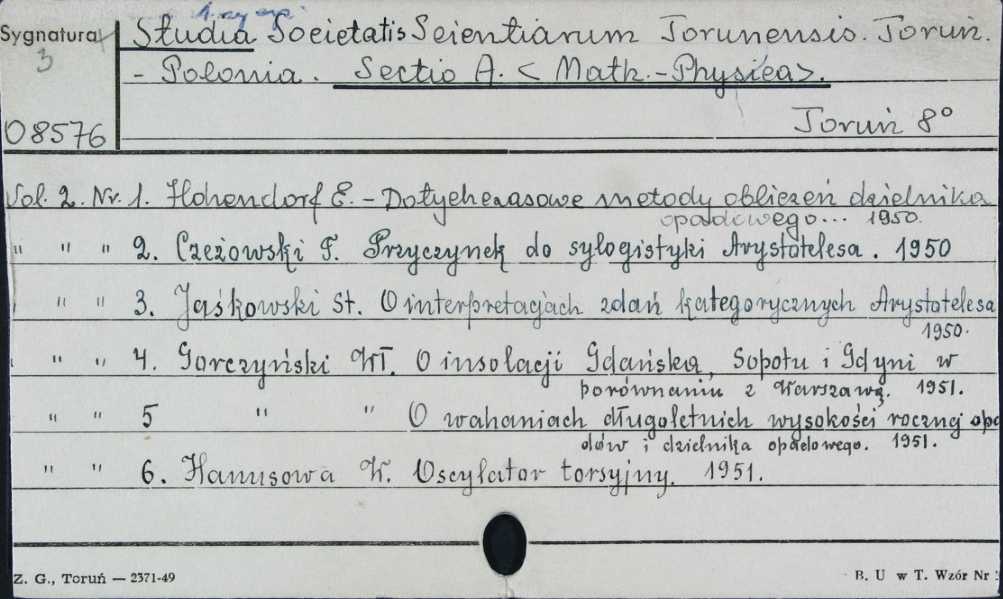 Sygnatura Studia Societatis Scientiarum Torunensis. Toruń.
3 - Polonia. Sectio A. < Math.-Physica>.
08576 Toruń 8°
Vol. 2. Nr. 1. Hohendorf E. - Dotychczasowe metody obliczeń dzielnika
opadowego... 1950.
" " " 2. Czeżowski T. Przyczynek do sylogistyki Arystotelesa. 1950
" " 3. Jaśkowski St. O interpretacjach zdań kategorycznych Arystotelesa
1950.
" " 4. Gorczyński Wł. O insolacji Gdańska, Sopotu i Gdyni w
porównaniu z Warszawą. 1951.
" " 5 " " O wahaniach długoletnich wysokości rocznej opa
dów i dzielnika opadowego. 1951.
" " 6. Hanusowa W. Oscylator torsyjny. 1951.
Z. G., Toruń — 2371-49 B. U w T. Wzór Nr